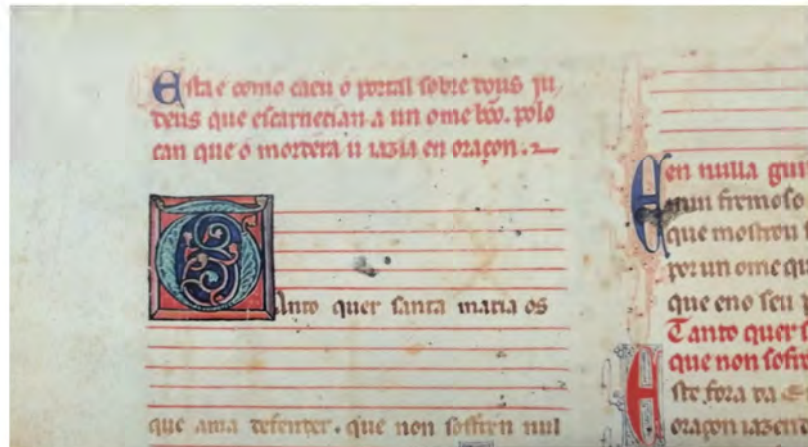 Esta e como caeu o portal sobre dous ju
deus que escarnecian a un ome bõo. polo
can que o mordera u iazia en oraçon.
Tanto quer santa maria os
que ama defender. que non soffren nul
en nulla gui
mui fremoso
que mostrou
por un ome qu
que eno seu
Tanto quer
que non soffre
ste fora da
oraçon iazen